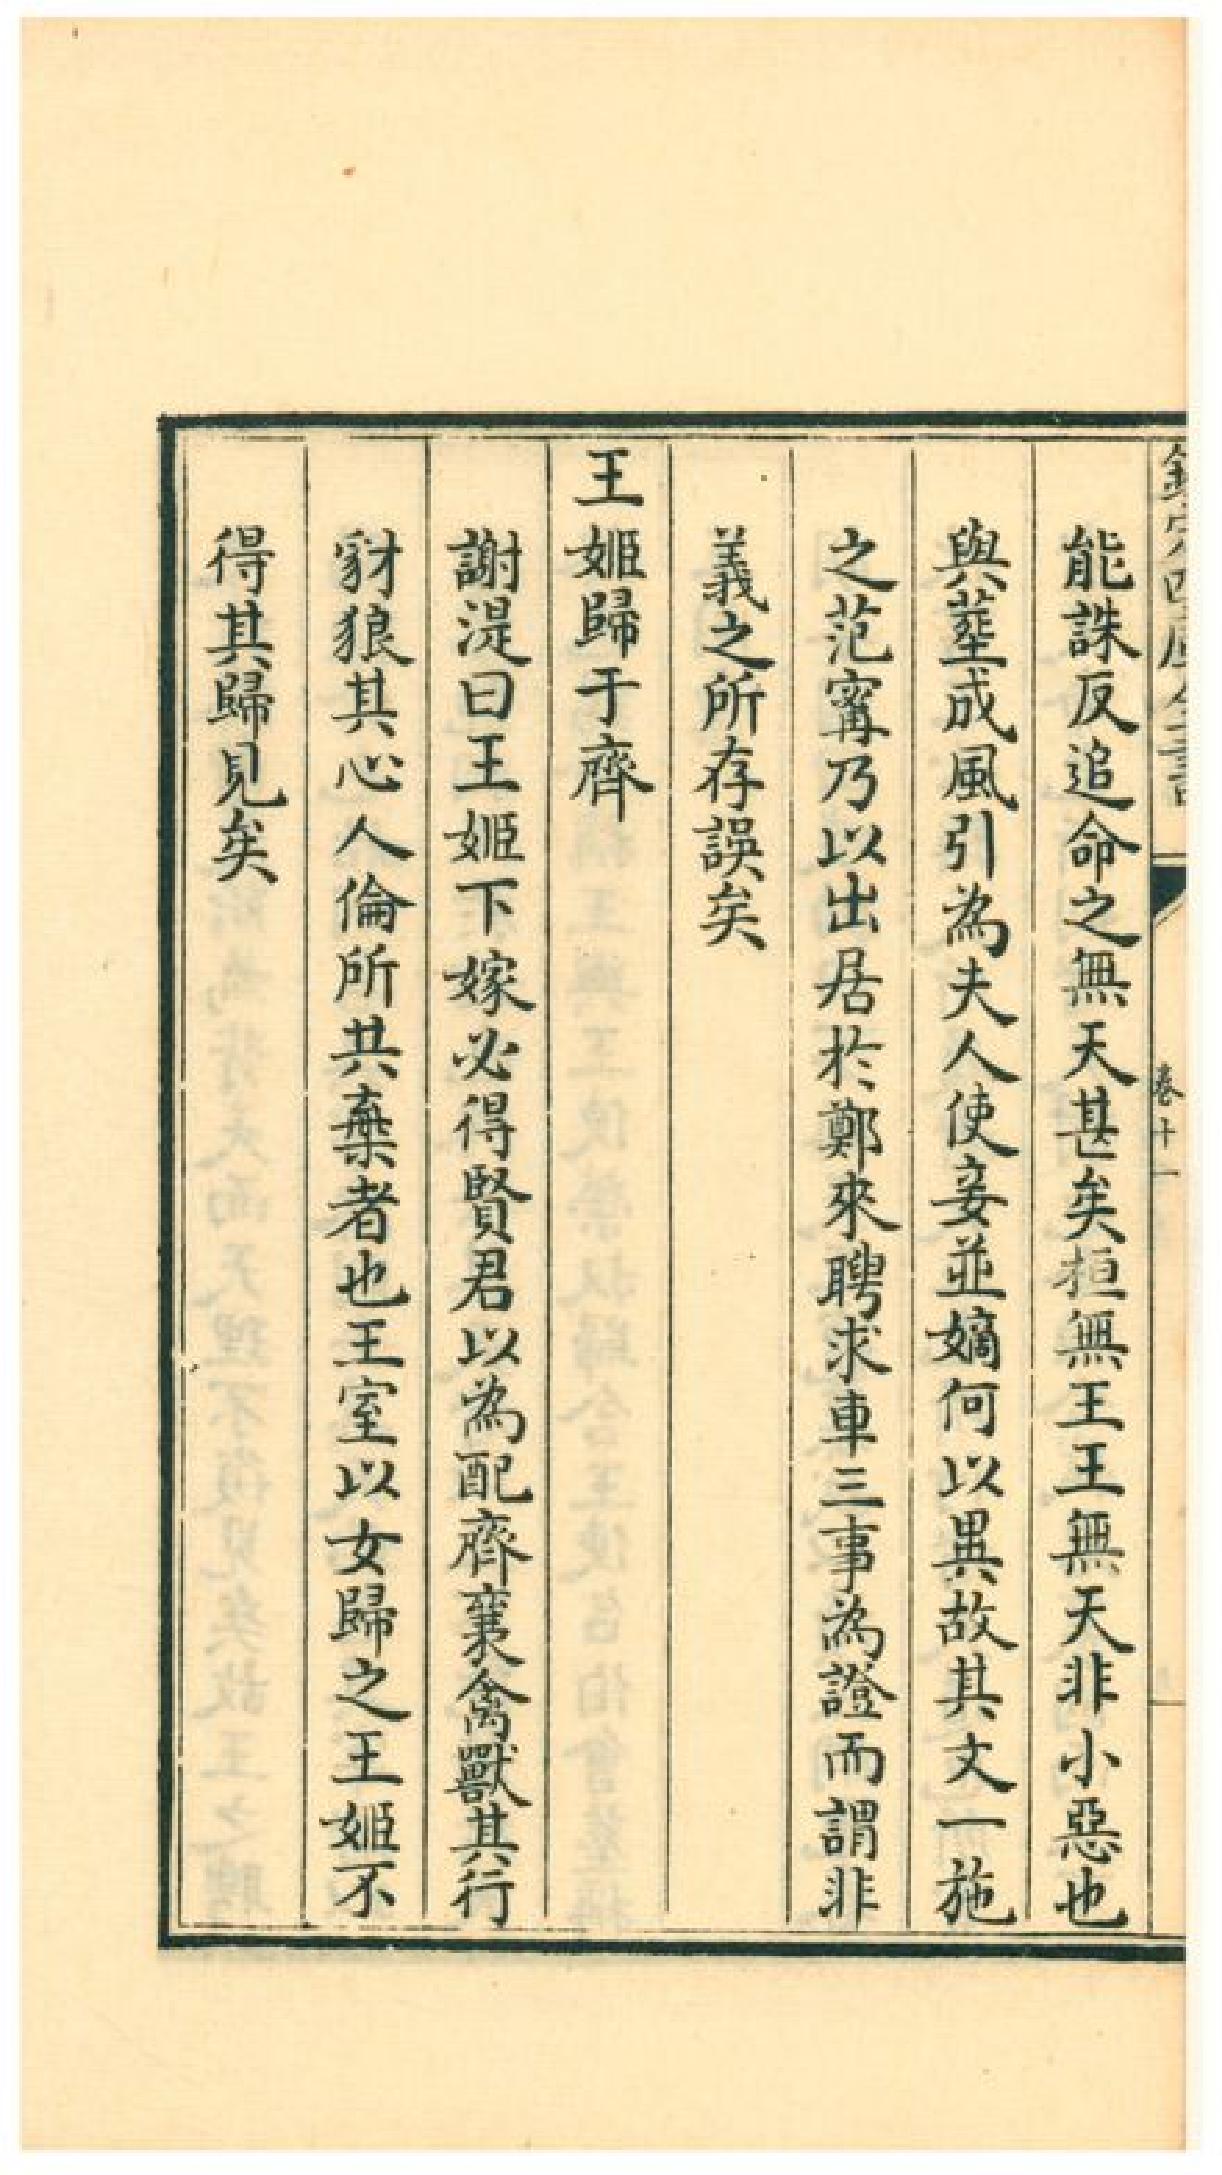 欽定四庫全書
卷十一
能誅反追命之無天甚矣桓無王王無天非小惡也
與葬成風引為夫人使妾並嫡何以異故其文一施
之范甯乃以出居於鄭來聘求車三事為證而謂非
義之所存誤矣
王姬歸于齊
謝湜曰王姬下嫁必得賢君以為配齊襄禽獸其行
豺狼其心人倫所共棄者也王室以女歸之王姬不
得其歸見矣